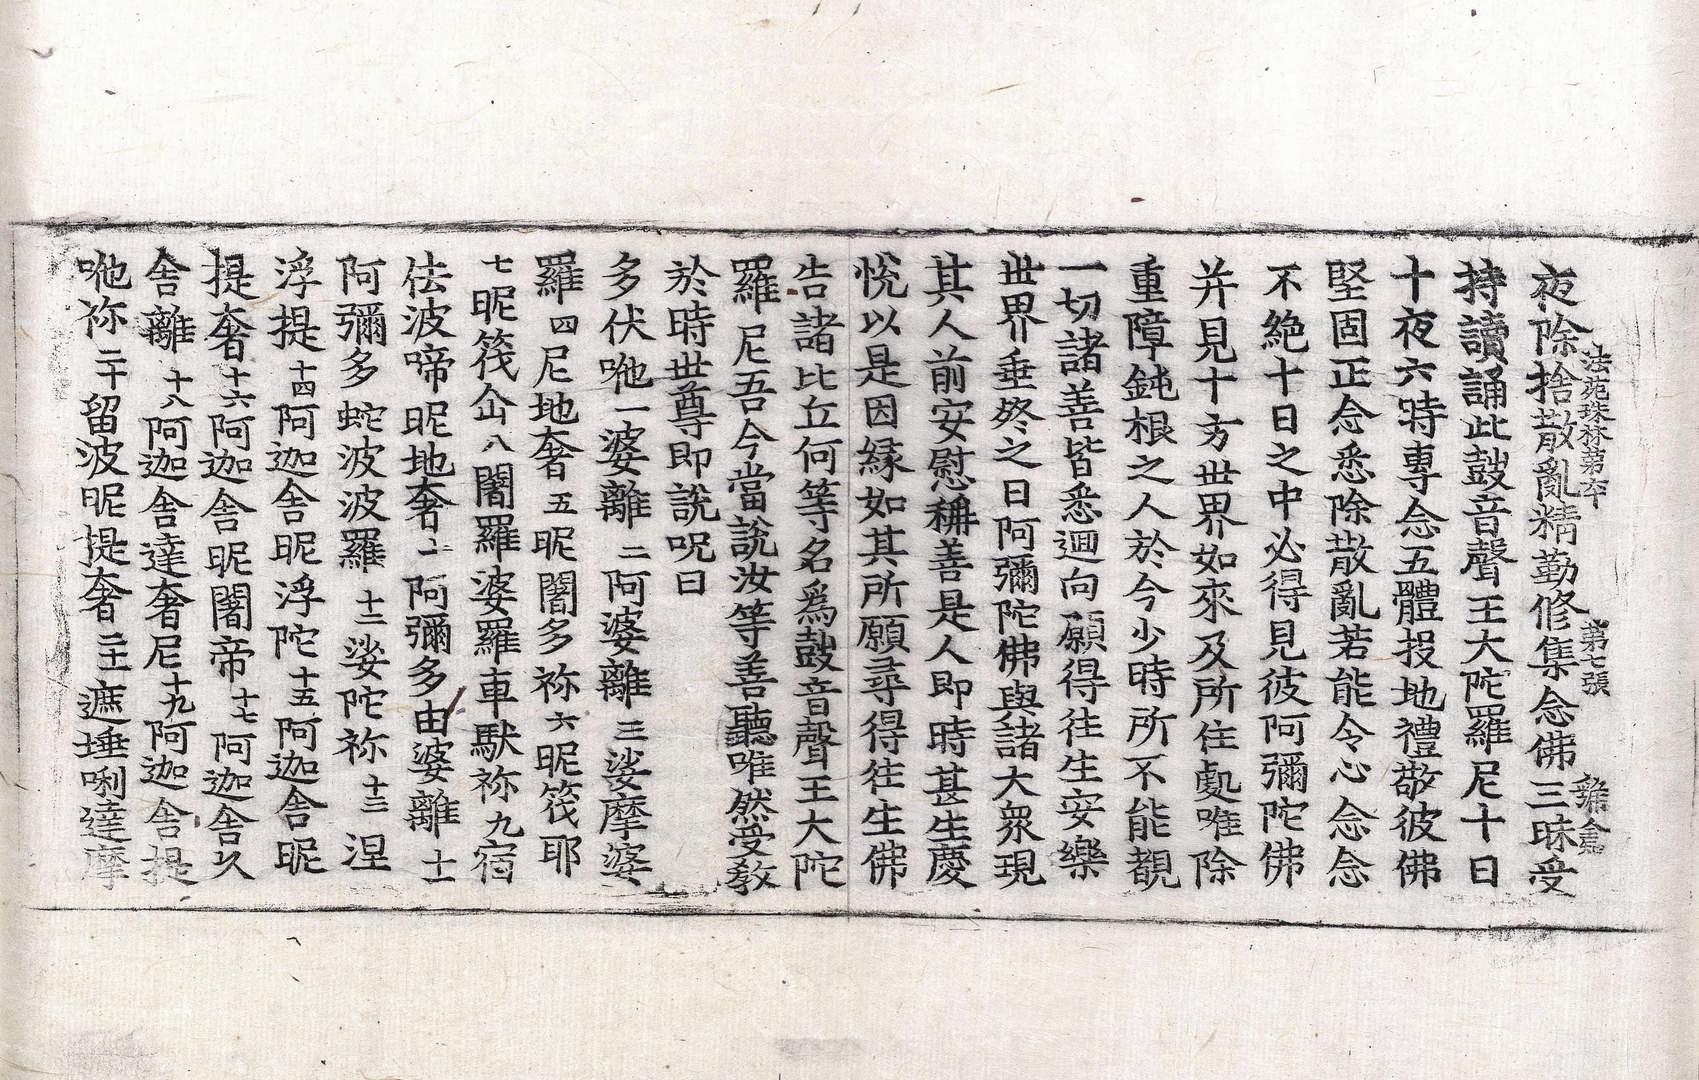 法苑珠林第六十 第七張
夜除捨散亂精勤修集念佛三昧受
持讀誦此鼓音聲王大陀羅尼十日
十夜六時專念五體投地禮敬彼佛
堅固正念悉除散亂若能令心念念
不絶十日之中必得見彼阿彌陀佛
并見十方世界如來及所住處唯除
重障鈍根之人於今少時所不能覩
一切諸善皆悉迴向願得往生安樂
世界垂終之日阿彌陀佛與諸大衆現
其人前安慰稱善是人即時甚生慶
悅以是因緣如其所願尋得往生佛
告諸比丘何等名爲鼓音聲王大陀
羅尼吾今當説汝等善聽唯然受教
於時世尊即説呪曰
多伏咃一婆離二阿婆離三娑摩婆
羅四尼地奢五昵闍多祢六昵筏耶
七昵筏仚八闍羅婆羅車馱祢九宿
佉波啼昵地奢十阿彌多由婆離十一
阿彌多蛇波波羅十二娑陀祢十三涅
浮提十四阿迦舎昵浮陀十五阿迦舎昵
提奢十六阿迦舎昵闍帝十七阿迦舎久
舎離十八阿迦舎達奢尼十九阿迦舎提
咃祢二十留波昵提奢二十一遮埵唎達摩